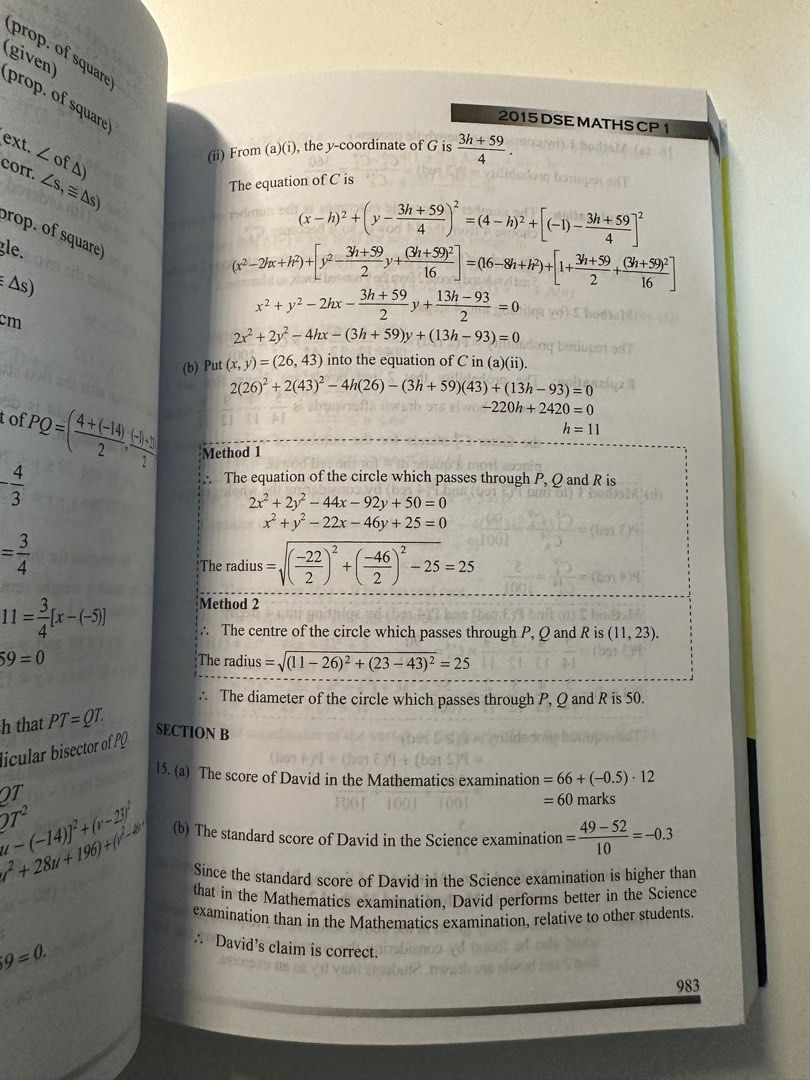 (prop. of square)
(given)
(prop. of square)
(ext. ∠ of Δ)
corr. ∠s, ≅ Δs)
prop. of square)
gle.
≅ Δs)
cm
t of PQ = (4 + (−14)/2, (−1) + 23/2
4/3
= 3/4
11 = 3/4[x − (−5)]
59 = 0
h that PT = QT.
dicular bisector of PQ.
QT
QT²
u − (−14)]² + (v − 23)²
u² + 28u + 196) + (v² − 46v
59 = 0.
2015 DSE MATHS CP 1
(ii) From (a)(i), the y-coordinate of G is (3h + 59)/4.
The equation of C is
(x − h)² + (y − (3h + 59)/4)² = (4 − h)² + [(−1) − (3h + 59)/4]²
(x² − 2hx + h²) + [y² − (3h + 59)/2 y + (3h + 59)²/16] = (16 − 8h + h²) + [1 + (3h + 59)/2 + (3h + 59)²/16]
x² + y² − 2hx − (3h + 59)/2 y + (13h − 93)/2 = 0
2x² + 2y² − 4hx − (3h + 59)y + (13h − 93) = 0
(b) Put (x, y) = (26, 43) into the equation of C in (a)(ii).
2(26)² + 2(43)² − 4h(26) − (3h + 59)(43) + (13h − 93) = 0
−220h + 2420 = 0
h = 11
Method 1
∴ The equation of the circle which passes through P, Q and R is
2x² + 2y² − 44x − 92y + 50 = 0
x² + y² − 22x − 46y + 25 = 0
The radius = √((−22/2)² + (−46/2)² − 25) = 25
Method 2
∴ The centre of the circle which passes through P, Q and R is (11, 23).
The radius = √((11 − 26)² + (23 − 43)²) = 25
∴ The diameter of the circle which passes through P, Q and R is 50.
SECTION B
15. (a) The score of David in the Mathematics examination = 66 + (−0.5) · 12
= 60 marks
(b) The standard score of David in the Science examination = (49 − 52)/10 = −0.3
Since the standard score of David in the Science examination is higher than
that in the Mathematics examination, David performs better in the Science
examination than in the Mathematics examination, relative to other students.
∴ David's claim is correct.
983